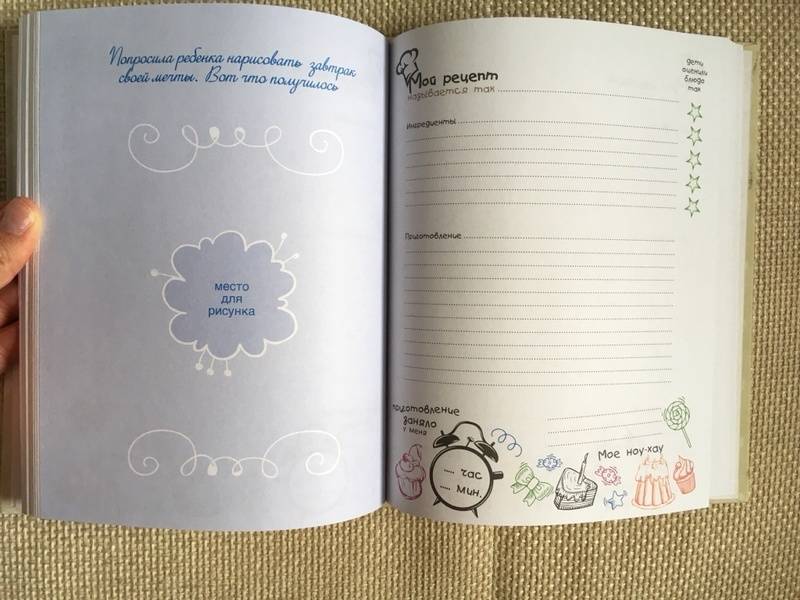 Попросила ребенка нарисовать завтрак
своей мечты. Вот что получилось
место
для
рисунка
Мой рецепт
называется так
дети
оценили
блюдо
так
Ингредиенты
Приготовление
приготовление
заняло
у меня
час
мин.
Мое ноу-хау